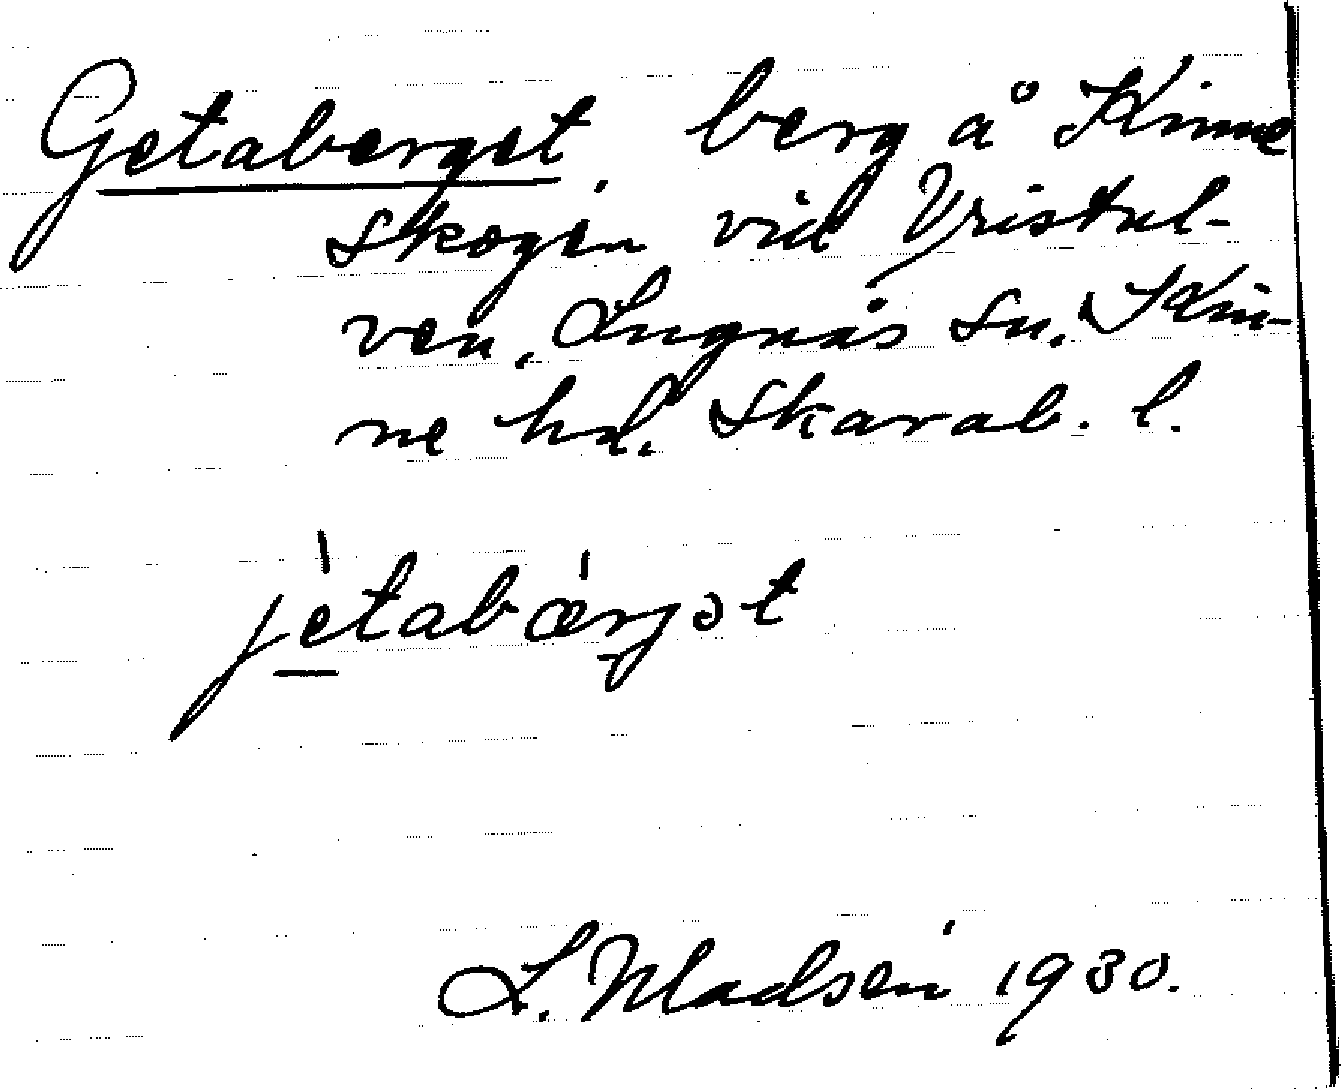 Getaberget, berg å Kinne
skogen vid Vristul-
ven, Lugnås sn. Kin-
ne hd. Skarab. l.
jètabǽrjət
L. Madsén 1930.